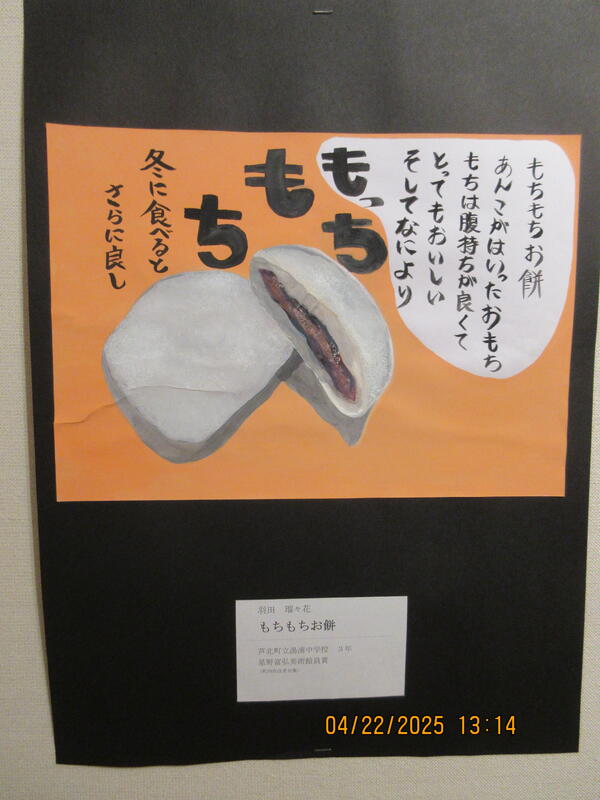 もちもちお餅
あんこがはいったおもち
もちは腹持ちが良くて
とってもおいしい
そしてなにより
もっち
もち
冬に食べると
さらに良し
羽田 瑠々花
もちもちお餅
芦北町立湯浦中学校 3年
星野富弘美術館員賞
04/22/2025 13:14